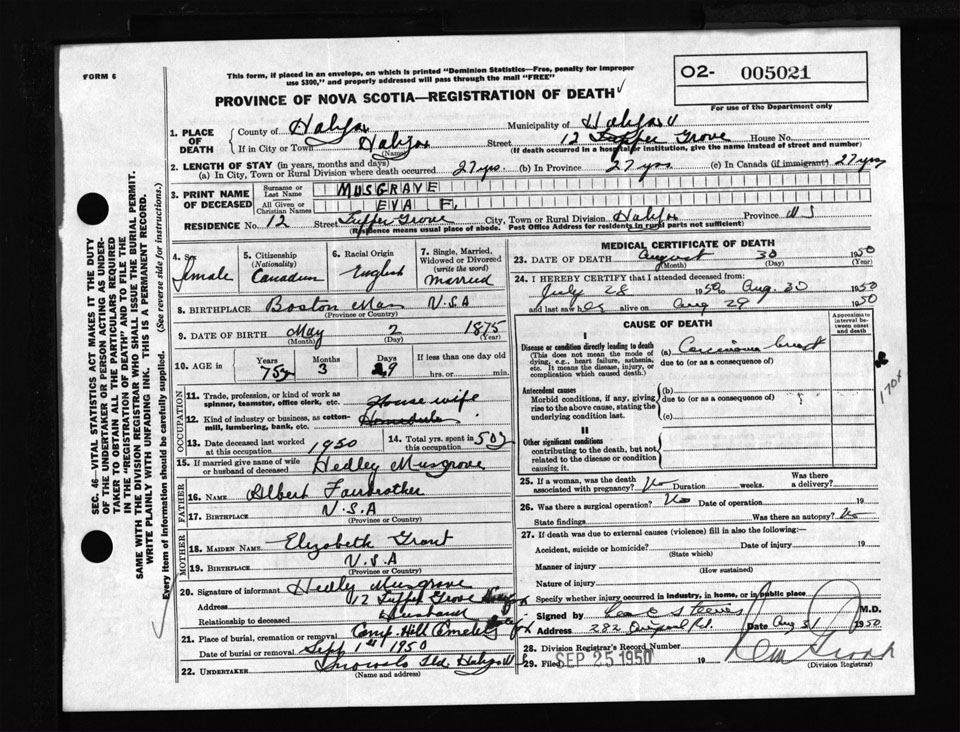 FORM 6
This form, if placed in an envelope, on which is printed "Dominion Statistics—Free, penalty for improper
use $300," and properly addressed will pass through the mail "FREE"
O2- 005021
For use of the Department only
PROVINCE OF NOVA SCOTIA—REGISTRATION OF DEATH
1. PLACE OF DEATH
County of Halifax Municipality of Halifax
If in City or Town Halifax (Name) Street 12 Tupper Grove House No.
(If death occurred in a hospital or institution, give the name instead of street and number)
2. LENGTH OF STAY (in years, months and days)
(a) In City, Town or Rural Division where death occurred 27 yrs. (b) In Province 27 yrs. (c) In Canada (if immigrant) 27 yrs
3. PRINT NAME OF DECEASED
Surname or Last Name MUSGRAVE
All Given or Christian Names EVA F.
RESIDENCE No. 12 Street Tupper Grove City, Town or Rural Division Halifax Province N S
(Residence means usual place of abode. Post Office Address for residents in rural parts not sufficient)
4. Sex female
5. Citizenship (Nationality) Canadian
6. Racial Origin English
7. Single, Married, Widowed or Divorced (write the word) Married
8. BIRTHPLACE Boston Mass U.S.A
(Province or Country)
9. DATE OF BIRTH May 2 1875
(Month) (Day) (Year)
10. AGE in Years 75 Months 3 Days 29 If less than one day old
hrs. or min.
OCCUPATION
11. Trade, profession, or kind of work as spinner, teamster, office clerk, etc. Housewife
12. Kind of industry or business, as cotton-mill, lumbering, bank, etc.
13. Date deceased last worked at this occupation 1950
14. Total yrs. spent in this occupation 50
15. If married give name of wife or husband of deceased Hedley Musgrove
FATHER
16. NAME Albert Fairbrother
17. BIRTHPLACE U.S.A
(Province or Country)
MOTHER
18. MAIDEN NAME Elizabeth Grant
19. BIRTHPLACE U.S.A
(Province or Country)
20. Signature of informant Hedley Musgrove
Address 12 Tupper Grove Halifax
Relationship to deceased Husband
21. Place of burial, cremation or removal Camp Hill Cemetery
Date of burial or removal Sept 1st 1950
22. UNDERTAKER Snows Ltd. Halifax
(Name and address)
MEDICAL CERTIFICATE OF DEATH
23. DATE OF DEATH August 30 1950
(Month) (Day) (Year)
24. I HEREBY CERTIFY that I attended deceased from
July 28 1950 to Aug. 30 1950
and last saw her alive on Aug 29 1950
CAUSE OF DEATH
Approximate interval between onset and death
I
Disease or condition directly leading to death
(This does not mean the mode of dying, e.g., heart failure, asthenia, etc. It means the disease, injury, or complication which caused death.)
(a) Carcinoma breast
due to (or as a consequence of)
170X
Antecedent causes
Morbid conditions, if any, giving rise to the above cause, stating the underlying condition last.
(b)
due to (or as a consequence of)
(c)
II
Other significant conditions
contributing to the death, but not related to the disease or condition causing it.
25. If a woman, was the death associated with pregnancy? No Duration weeks. Was there a delivery?
26. Was there a surgical operation? No Date of operation 19
State findings Was there an autopsy? No
27. If death was due to external causes (violence) fill in also the following:—
Accident, suicide or homicide? Date of injury 19
(State which)
Manner of injury
(How sustained)
Nature of injury
Specify whether injury occurred in industry, in home, or in public place
Signed by Steeves M.D.
Address 282 Rd. Date Aug 31 1950
28. Division Registrar's Record Number
29. Filed SEP 25 1950 19
(Division Registrar)
SEC. 46—VITAL STATISTICS ACT MAKES IT THE DUTY
OF THE UNDERTAKER OR PERSON ACTING AS UNDER-
TAKER TO OBTAIN ALL THE PARTICULARS REQUIRED
IN THE "REGISTRATION OF DEATH" AND TO FILE THE
SAME WITH THE DIVISION REGISTRAR WHO SHALL ISSUE THE BURIAL PERMIT.
WRITE PLAINLY WITH UNFADING INK. THIS IS A PERMANENT RECORD.
Every item of information should be carefully supplied. (See reverse side for instructions.)